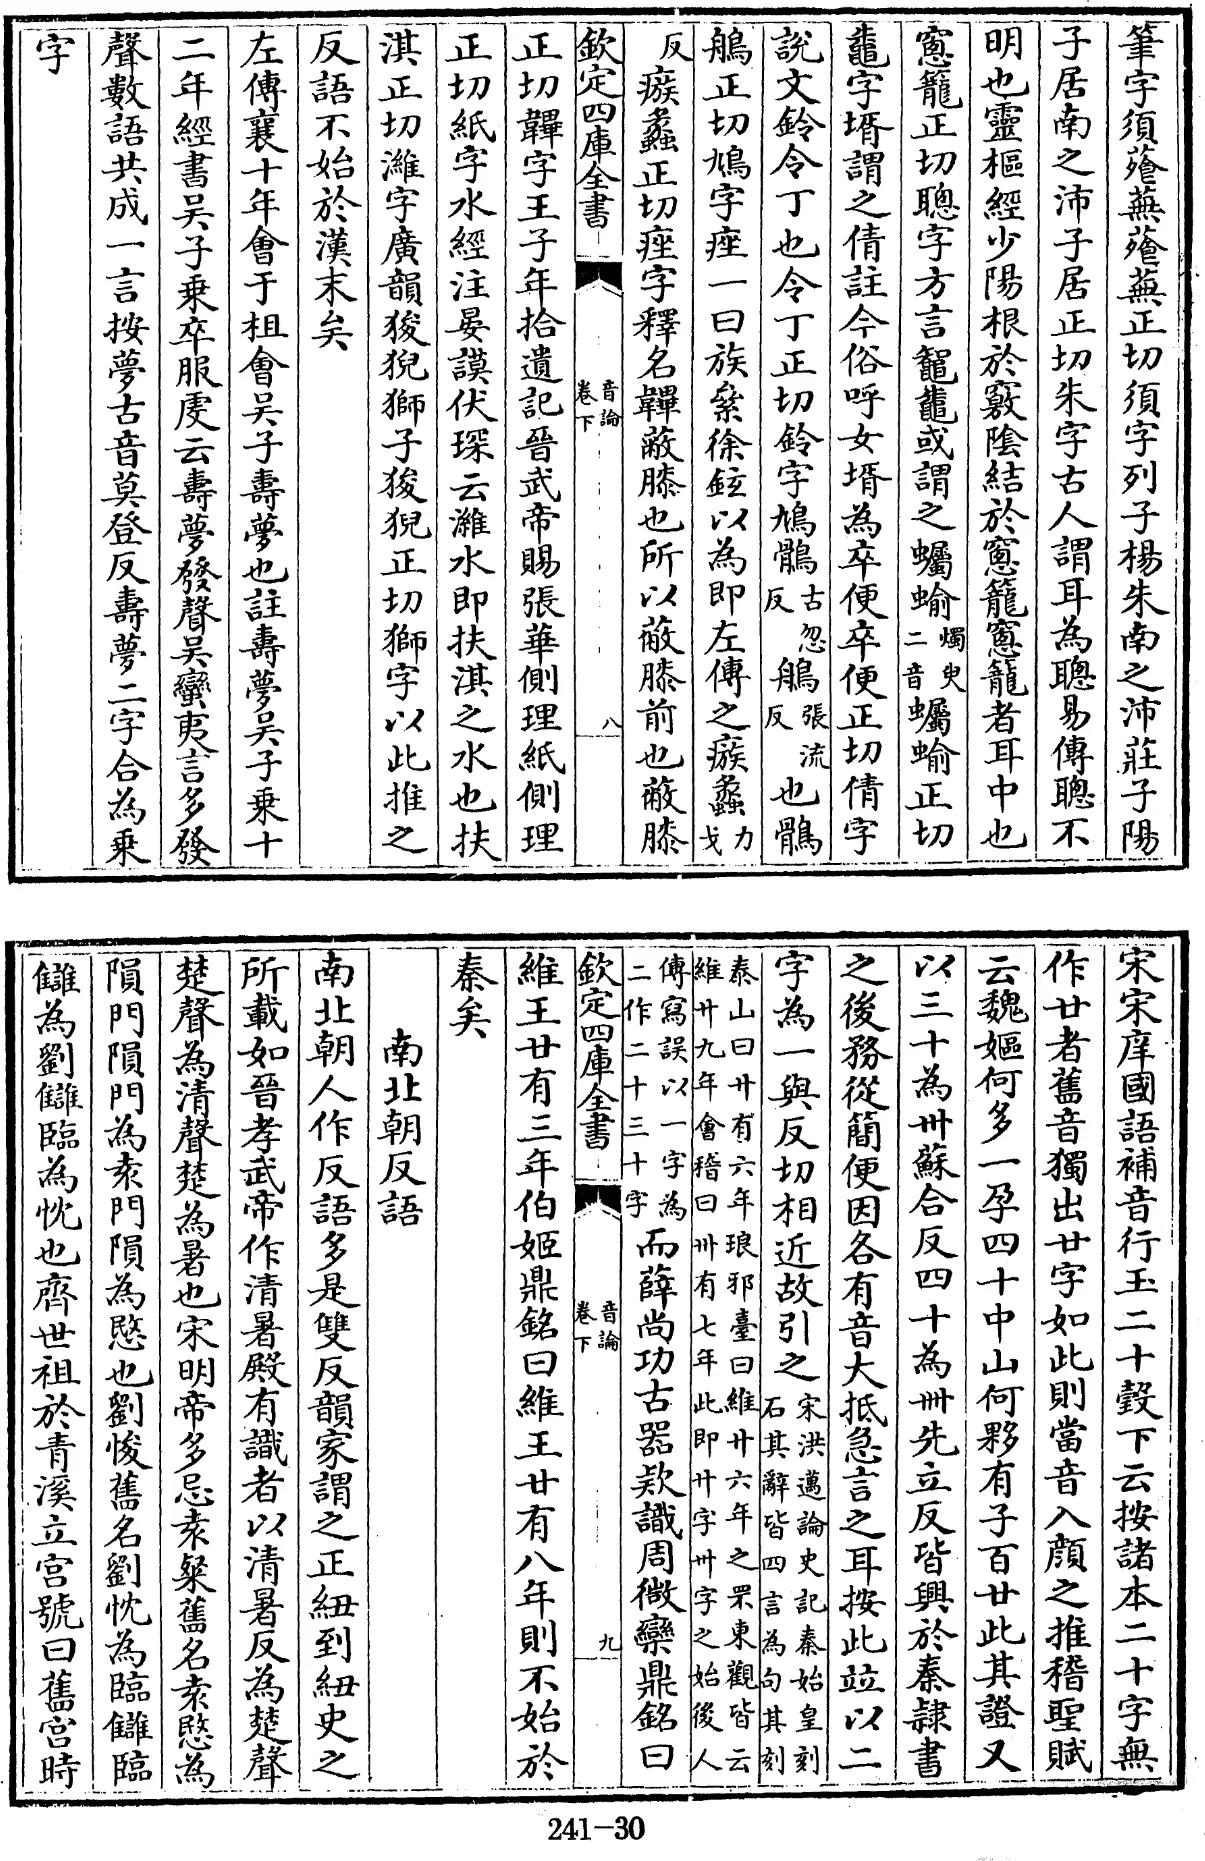 筆字須薞蕪薞蕪正切須字列子楊朱南之沛莊子陽
子居南之沛子居正切朱字古人謂耳為聰易傳聰不
明也靈樞經少陽根於竅陰結於窻籠窻籠者耳中也
窻籠正切聰字方言鼅鼄或謂之蠾蝓燭臾二音蠾蝓正切
鼄字壻謂之倩註今俗呼女壻為卒便卒便正切倩字
說文鈴令丁也令丁正切鈴字鳩鶻古忽反鵃張流反也鶻
鵃正切鳩字痤一曰族絫徐鉉以為即左傳之瘯蠡力戈
反瘯蠡正切痤字釋名韠蔽膝也所以蔽膝前也蔽膝
欽定四庫全書
音論
卷下
八
正切韠字王子年拾遺記晉武帝賜張華側理紙側理
正切紙字水經注晏謨伏琛云濰水即扶淇之水也扶
淇正切濰字廣韻狻猊獅子狻猊正切獅字以此推之
反語不始於漢末矣
左傳襄十年會于柤會吳子壽夢也註壽夢吳子乗十
二年經書吳子乗卒服虔云壽夢發聲吳蠻夷言多發
聲數語共成一言按夢古音莫登反壽夢二字合為乗
字
宋宋庠國語補音行玉二十瑴下云按諸本二十字無
作廿者舊音獨出廿字如此則當音入顔之推稽聖賦
云魏嫗何多一孕四十中山何夥有子百廿此其證又
以三十為卅蘇合反四十為卌先立反皆興於秦隸書
之後務從簡便因各有音大抵急言之耳按此竝以二
字為一與反切相近故引之宋洪邁論史記秦始皇刻石其辭皆四言為句其刻
泰山曰廿有六年琅邪臺曰維廿六年之罘東觀皆云維廿九年會稽曰卅有七年此即廿字卅字之始後人
傳寫誤以一字為二作二十三十字而薛尚功古器欵識周微欒鼎銘曰
欽定四庫全書
音論
卷下
九
維王廿有三年伯姬鼎銘曰維王廿有八年則不始於
秦矣
南北朝反語
南北朝人作反語多是雙反韻家謂之正紐到紐史之
所載如晉孝武帝作清暑殿有識者以清暑反為楚聲
楚聲為清聲楚為暑也宋明帝多忌袁粲舊名袁愍為
隕門隕門為袁門隕為愍也劉悛舊名劉忱為臨讎臨
讎為劉讎臨為忱也齊世祖於青溪立宮號曰舊宮時
241-30